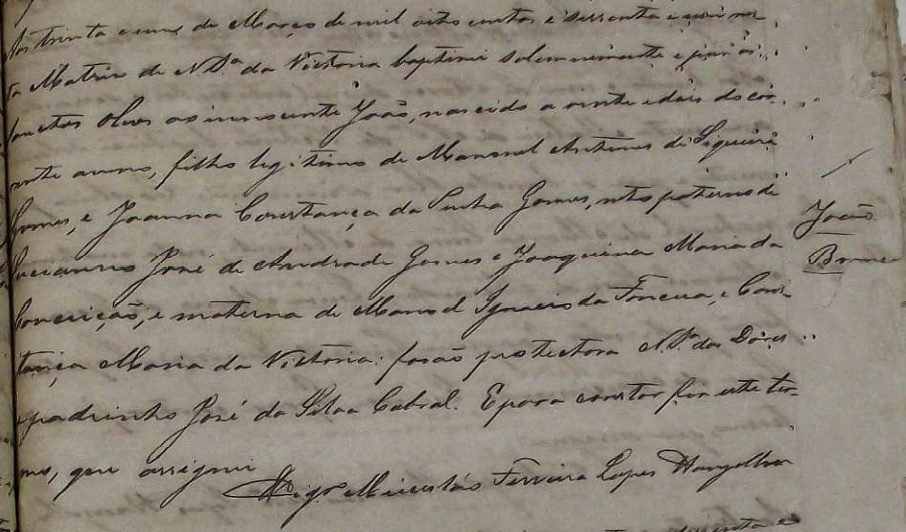 Aos trinta e um de Março de mil oito centos e sessenta e um nes
ta Matriz de N. S.ª da Victoria baptisei solemnemente e puz os
Sanctos Oleos ao innocente João, nascido a vinte e dois do cor
rente anno, filho legitimo de Manoel Antunes de Siqueira
Gomes, e Joanna Constança da Penha Gomes, neto paterno de
Luciano José de Andrade Gomes e Joaquina Maria da
Conceição, e materno de Manoel Ignacio da Fonceca, e Cons-
tança Maria da Victoria: forão protectora N. S.ª das Dôres
e padrinho José da Silva Cabral. E para constar fiz este ter-
mo, que assignei
João
Branco
O Vigr.º Ferreira Lopes